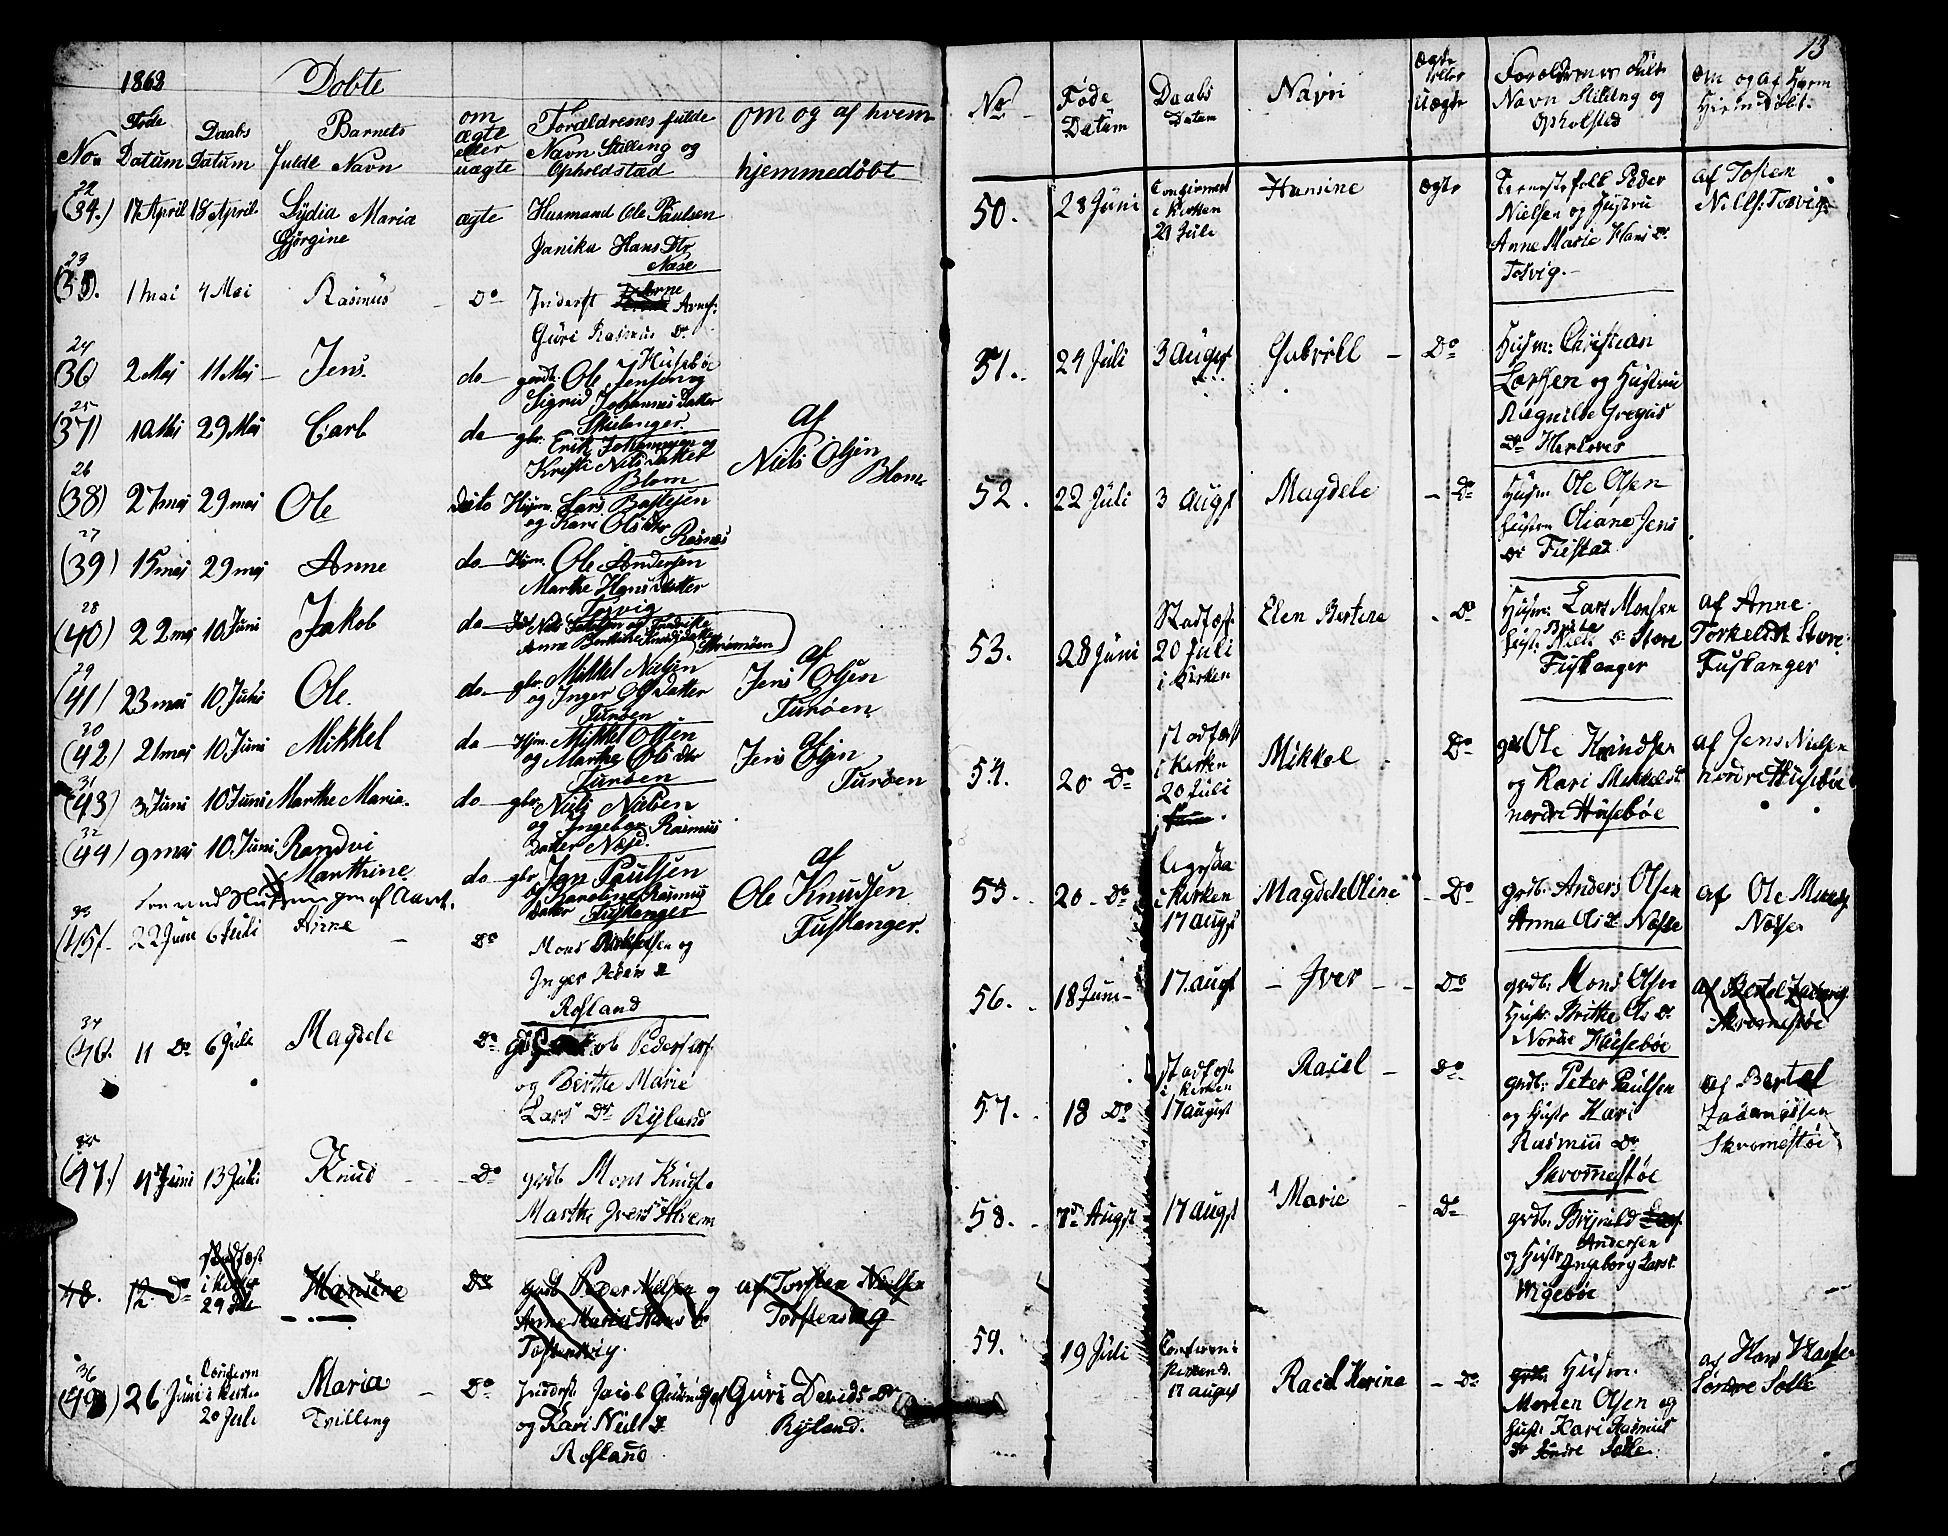 1868 Døbte
No. Føde Datum Daabs Datum Barnets fulde Navn om ægte eller uægte Forældrenes fulde Navn Stilling og Opholdstæd om og af hvem hjemmedøbt
22
(34.) 17 April 18 April Lydia Maria ægte Husmand Ole Paulsen
Gjørgine Janika Hans Dtr
Næse
23
(35). 1 mai 4 Mai Rasmus Do Inderst Arne Arnes.
Guri Rasmus Dr
Husebøe
24
(36) 2 Mai 11 Mai Jens. do gaadb. Ole Jensen og
Sigrid Johannes Datter
Skielanger
25
(37) 10 Mai 29 Mai Carl do gbr. Erik Johannesen og
Kristi Nils Datter
Blom
af
Niels Olsen
Blom
26
(38) 27 mai 29 mai Ole dito Husm. Lars
og Kari Ols dtr
Rosnes
27
(39) 15 mai 29 mai Anne do Hsm. Ole Andersen
Marthe Hans Datter
Tosvig
28
(40) 22 mai 10 Juni Jakob do
Anne
29
(41) 23 mai 10 Juni Ole. do gbr. Mikkel Nilsen
og Inger Ols Datter
Turøen
af
Jens Olsen
Turøen
30
(42) 21 mai 10 Juni Mikkel do Hsm. Mikkel Olsen
og Marthe Ols dtr
Turøen
af
Jens Olsen
Turøen
31
(43) 3 Juni 10 Juni Marthe Maria. do gbr. Nils Nilsen
og Ingebor Rasmus
Datter Næse.
32
(44) 9 mai 10 Juni Randvi
Marthine do gbr Jan Paulsen
og Karoline Rasmus
Datter Fuslanger
af
Ole Knudsen
Fuslanger.
33
(45) 22 Juni 6 Juli Anne Do Mons og
Inger
Rosland
34
(46). 11 Do 6 Juli Magdele Do Pederssen
og Birthe Marie
Lars Dr Ryland
35
(47.) 4 Juni 13 Juli Knud Do grdb Mons Knuds.
Marthe Ivers Alvem
48. 12 Do stadfæst i Kirken 29 Hansine Do grdb Peder Nielsen og af Torsten Nielsen
Anne Maria Hans Dr
36
(49) 26 Juni i Kirken 20 Juli Maria Do Inderst Jacob Gudmunds Guri Davids Dr
Tvilling og Kari Niels Dr Ryland.
Rosland
13
No Føde Datum Daabs Datum Navn Ægte eller uægte Forældrenes fulde Navn Stilling og Opholsted om og af Hvem Hiemdøbt.
50. 28 Juni Confirmert i Kirken 21 Juli Hansine Ægte Tienestefolk Peder
Nielsen og Hustru
Anne Marie Hans Dr
Tosvig.
af Tosten
Nils. Tosvig.
51. 24 Juli 3 August Gabriel Do Husm: Christian
Larsen og Hustru
Regnilde Gregus
Dr Herlover
52. 22 Juli 3 Augst Magdele Do Husm Ole Olsen
Hustru Oliane Jens
Dr Fiestad
53. 28 Juni Stadfæst 20 Juli i Kirken Elen Bertine Do Husm: Lars Monsen
Hust: Niels Dr Store
Fuslanger
af Anne
Torkeldtr Store
Fuslanger
54. 20 Do stadfæst i Kirken 20 Juli Mikkel Do Ole Knudsen
og Kari Mikkeldt.
nordre Husebøe
af Jens Nielsen
nordre Husebøe
55. 20 Do i Kirken 17 augst Magdele Oline Do grdb: Anders Olsen
Anna Ols Dr Næsse
af Ole
Næsse
56. 18 Juni 17. augst Iver Do grdb: Mons Olsen
Hustr. Brithe Ols Dr
Nordre Husebøe
af Bertel
Skromestøe
57. 18 Do stadfæst i Kirken 17 august Racel Do grdb: Peter Paulsen
og Hustr Kari
Rasmus Dr
Skromestøe
af Bertel
Zacariassen
Skromestøe
58. 7de Augst 17 augst Marie Do grdb: Brynild
Andersen
og Hustr Ingeborg Lars
Vigebøe
59. 19 Juli i Kirken 17 august Racel Karina Do Husm:
Morten Olsen og
Hustr: Kari Rasmus
Dr Søndre Solle.
af Hans
Søndre Solle